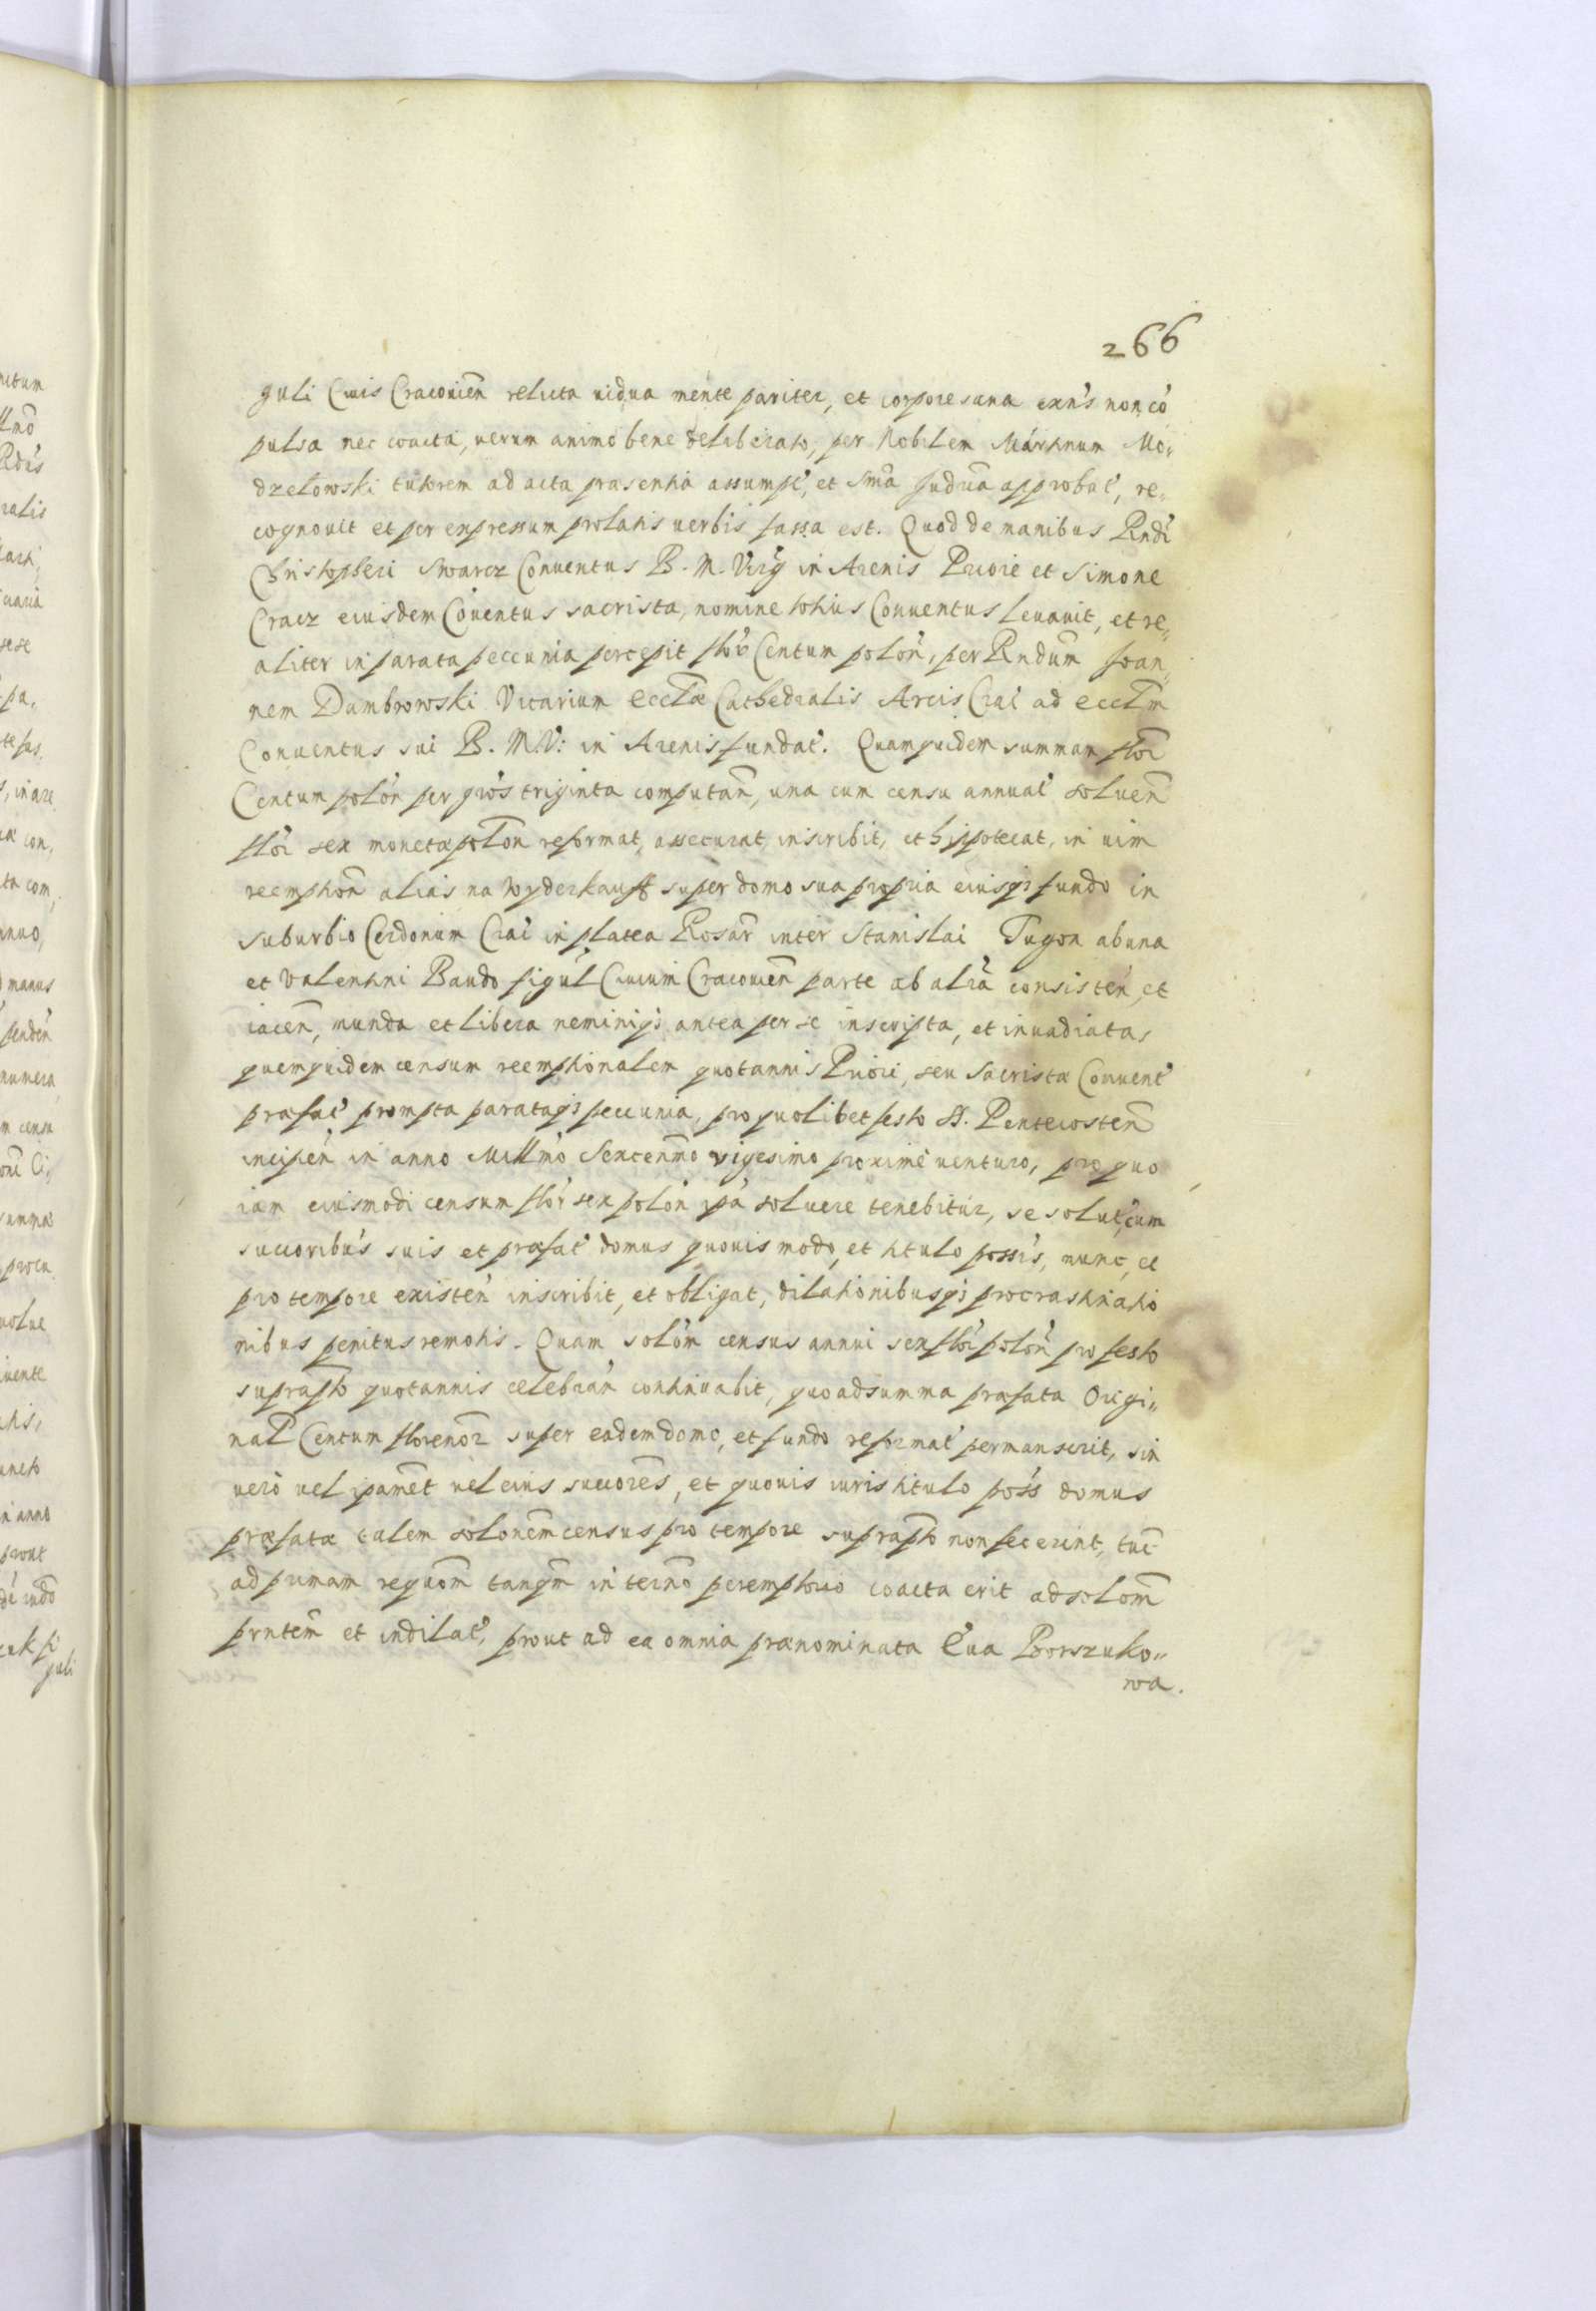 266
guli Ciuis Cracouień relicta uidua mente pariter, et corpore sana exn's non cō
pulsa nec coacta, uerum animo bene deliberato, per Nobilem Martinum Mo„
dzelowski tutorem ad acta præsentia assumpt', et s̄mā Judicia approbat', re„
cognouit et per expressum prolatis uerbis fassa est. Quod de manibus Rndi
Christopheri Swarcz Conuentus B. M. Virg in Arenis Priore et Simone
Cracz eiusdem Cōuentus sacrista, nomine totius Conuentus leuauit, et re„
aliter in parata peccunia percepit flor Centum polon, per Rndum Joan„
nem Dambrowski Vicarium Eccłæ Cathedralis Arcis Crac' ad Eccłm
Conuentus sui B. M. V: in Arenis fundat'. Quam quidem summam flor
Centum polon per gros triginta computan, una cum censu annuat' soluen
flor sex monetæ polon reformat, assecurat, inscribit, et hippotecat, in uim
reemption alias na wyderkauff super domo sua propria eiusq3 fundo in
suburbio Cerdonum Crac' in platea Rosar inter Stanislai Tugon ab una
et Valentini Bando figul Ciuium Cracouien parte ab aliā consisten, et
iacen, munda et libera neminiq3 antea per se inscripta, et inuadiata,
quemquidem censum reemptionalem quotannis Priori, seu Sacristæ Conuent'
præfat' prompta parataq3 peccunia, pro quolibet festo SS. Pentecosten
incipen in anno Millmo Sexcenmo vigesimo proxime uenturo, pro quo
iam eiusmodi censum flor sex polon ipa soluere tenebitur, se solut, cum
succoribus suis et præfat' domus quouis modo, et titulo possis, nunc, et
pro tempore existen inscribit, et obligat, dilationibusq3 procrastinatio
nibus penitus remotis. Quam solom census annui sex flor polon pro festo
suprapto quotannis celebran continuabit, quoad summa præfata Origi„
nal Centum florenor super eadem domo, et fundo reformat' permanserit, sin
uero uel ipamet uel eius succores, et quouis iuris titulo poss domus
præfatæ talem solonem census pro tempore suprapto non fecerint, tuc
ad primam requom tanqm in termo peremptorio coacta erit ad solom
prntem et indilat', prout ad ea omnia prænominata Eua Borszuko„
wa.